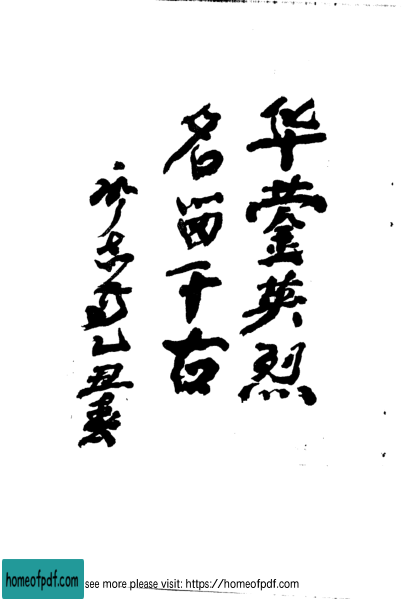 华蓥英烈
名留千古
廖志高乙丑春
homeofpdf.com
see more please visit: https://homeofpdf.com